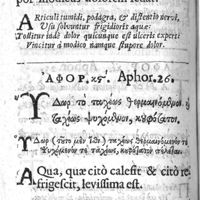 Articuli tumidi, podagra, & distentio nervi,
Usu solvuntur frigidioris aquæ:
Tollitur inde dolor quicunque est ulceris expers:
Vincitur à modico namque stupore dolor.
ἈΦΟΡ. κϛ. Aphor. 26.
Ὕδωρ τὸ ταχέως θερμαινόμενον καὶ
ταχέως ψυχόμενον, κουφότατον.
Ὕδωρ
θερμαινόμενόν τε
ψυχόμενόν τε ταχέως, κουφότατον
AQua, quæ citò calescit & citò re-
frigescit, levissima est.